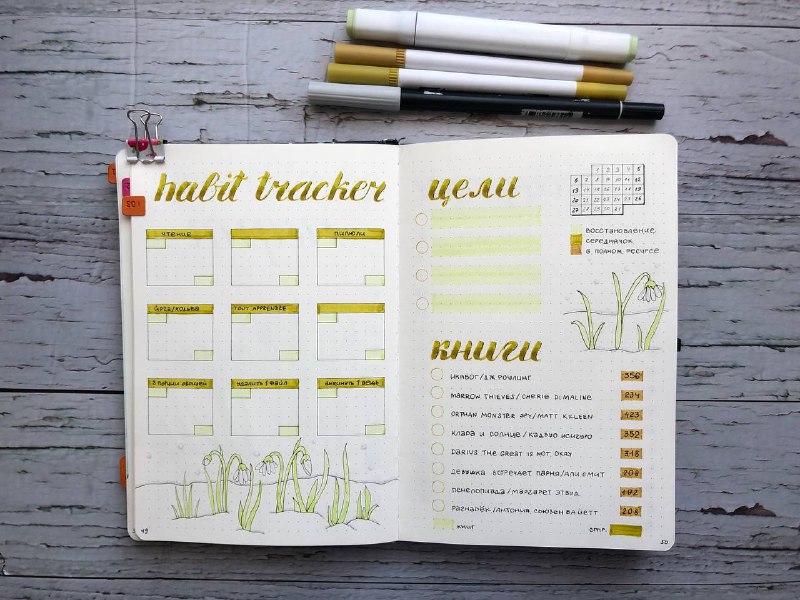 habit tracker
чтение
пилюли
йога/ходьба
tout apprendre
3 порции овощей
удалить 1 файл
выкинуть 1 вещь
49
цели
1 2 3 4 5
6 7 8 9 10 11 12
13 14 15 16 17 18 19
20 21 22 23 24 25 26
27 28 29 30 31
восстановление
середнячок
в полном ресурсе
книги
икабог/дж роулинг 356
marrow thieves/cherie dimaline 234
orphan monster spy/matt killeen 423
клара и солнце/кадзуо исигуро 352
darius the great is not okay 316
девушка встречает парня/али смит 208
пенелопиада/маргарет этвуд 192
рагнарёк/антония сьюзен байетт 208
книг стр.
50